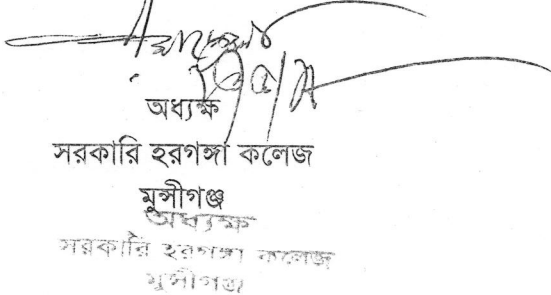 অধ্যক্ষ
সরকারি হরগঙ্গা কলেজ
মুন্সীগঞ্জ
অধ্যক্ষ
সরকারি হরগঙ্গা কলেজ
মুন্সীগঞ্জ